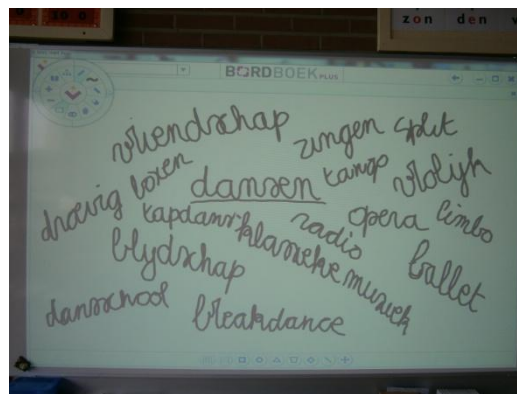 zon den
BORDBOEK PLUS
vriendschap zingen split
droevig boxen dansen tango vrolijk
tapdans radio opera limbo
blijdschap klassieke muziek ballet
dansschool breakdance